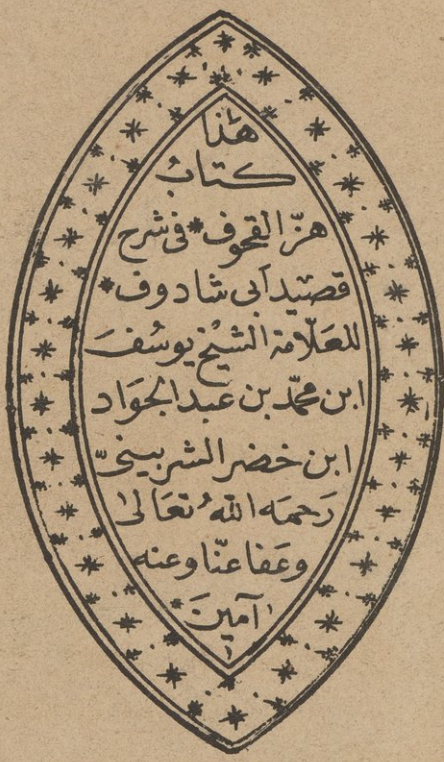 هٰذا
كتابُ
هزّ القحوف * فى شرح
قصيد أبى شادوف *
للعَلّامة الشيْخ يوسُفَ
ابن محمّد بن عبد الجوَاد
ابن خضر الشربينىّ
رَحمَه اللهُ تعَالىٰ
وعَفا عنّا وعنه
آمينَ *